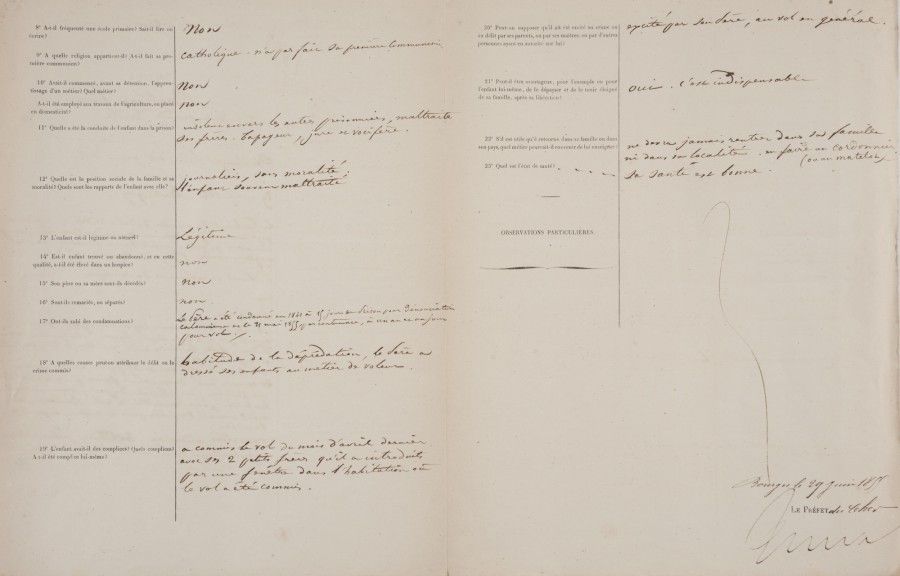 8° A-t-il fréquenté une école primaire? Sait-il lire ou
écrire?
Non
9° A quelle religion appartient-il? A-t-il fait sa pre-
mière communion?
Catholique. n'a pas fait sa première Communion
10° Avait-il commencé, avant sa détention, l'appren-
tissage d'un métier? Quel métier?
Non
A-t-il été employé aux travaux de l'agriculture, ou placé
en domesticité?
Non
11° Quelle a été la conduite de l'enfant dans la prison?
insolence envers les autres prisonniers, maltraite
ses frères. tapageur, jure et vocifère.
12° Quelle est la position sociale de la famille et sa
moralité? Quels sont les rapports de l'enfant avec elle?
journaliers, sans moralité
l'enfant souvent maltraité.
13° L'enfant est-il légitime ou naturel?
Légitime
14° Est-il enfant trouvé ou abandonné, et en cette
qualité, a-t-il été élevé dans un hospice?
non
15° Son père ou sa mère sont-ils décédés?
non
16° Sont-ils remariés, ou séparés?
non.
17° Ont-ils subi des condamnations?
Le Père a été condamné en 1841 à 15 jours de prison pour Dénonciation
calomnieuse et le 31 mai 1855 par contumace, à un an et un jour
pour vol.
18° A quelles causes peut-on attribuer le délit ou le
crime commis?
habitude de la déprédation, le Père a
dressé ses enfants au métier de voleur.
19° L'enfant avait-il des complices? Quels complices?
A-t-il été complice lui-même?
a commis le vol du mois d'avril dernier
avec ses 2 petits frères qu'il a introduits
par une fenêtre dans l'habitation où
le vol a été commis.
20° Peut-on supposer qu'il ait été excité au crime ou
au délit par ses parents, ou par ses maîtres, ou par d'autres
personnes ayant eu autorité sur lui?
excité par son Père, au vol en général.
21° Peut-il être avantageux, pour l'exemple ou pour
l'enfant lui-même, de le dépayser et de le tenir éloigné
de sa famille, après sa libération?
oui. c'est indispensable
22° S'il est utile qu'il retourne dans sa famille ou dans
son pays, quel métier pourrait-il convenir de lui enseigner?
ne devra jamais rentrer dans sa famille
ni dans sa localité. en faire un cordonnier
(ou un matelot).
23° Quel est l'état de santé?
Sa santé est bonne.
OBSERVATIONS PARTICULIÈRES.
Bourges le 29 juin 1855
LE PRÉFET du Cher